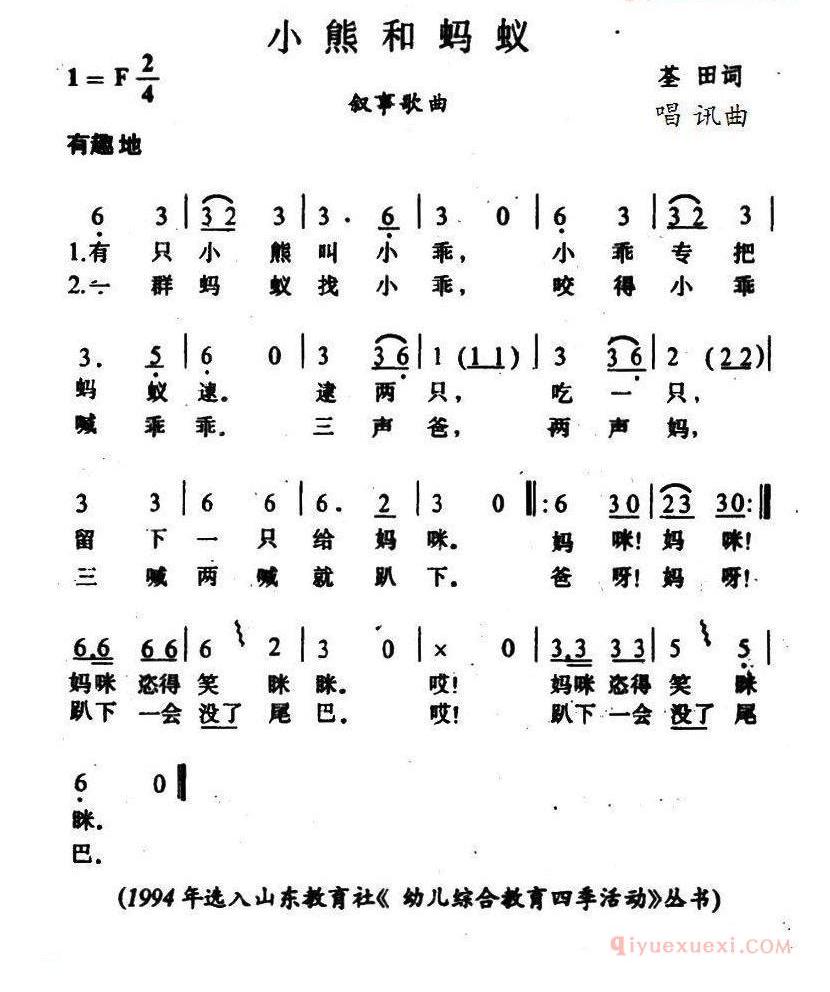 小熊和蚂蚁
1=F 2/4
叙事歌曲
荃田词
唱讯曲
有趣地
6 3 | 3 2 3 | 3 . 6 | 3 0 | 6 3 | 3 2 3 |
1.有只小熊叫小乖， 小乖专把
2.一群蚂蚁找小乖， 咬得小乖
3 . 5 | 6 0 | 3 3 6 | 1 (1 1) | 3 3 6 | 2 (2 2) |
蚂蚁逮。 逮两只， 吃一只，
喊乖乖。 三声爸， 两声妈，
3 3 | 6 6 | 6 . 2 | 3 0 ‖: 6 3 0 | 2 3 3 0 :‖
留下一只给妈咪。 妈咪！妈咪！
三喊两喊就趴下。 爸呀！妈呀！
6.6 6 6 | 6 2 | 3 0 | × 0 | 3.3 3 3 | 5 5 |
妈咪恣得笑眯眯。 哎！ 妈咪恣得笑眯
趴下一会没了尾巴。 哎！ 趴下一会没了尾
6 0 ‖
眯。
巴。
(1994年选入山东教育社《幼儿综合教育四季活动》丛书)
qiyuexuexi.COM